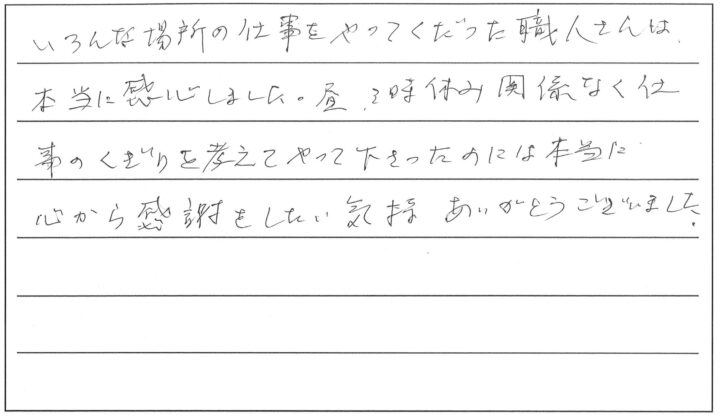 いろんな場所の仕事をやってくだった職人さんは、
本当に感心しました。昼、3時休み関係なく仕
事のくぎりを考えてやって下さったのには本当に
心から感謝をしたい気持 ありがとうございました。